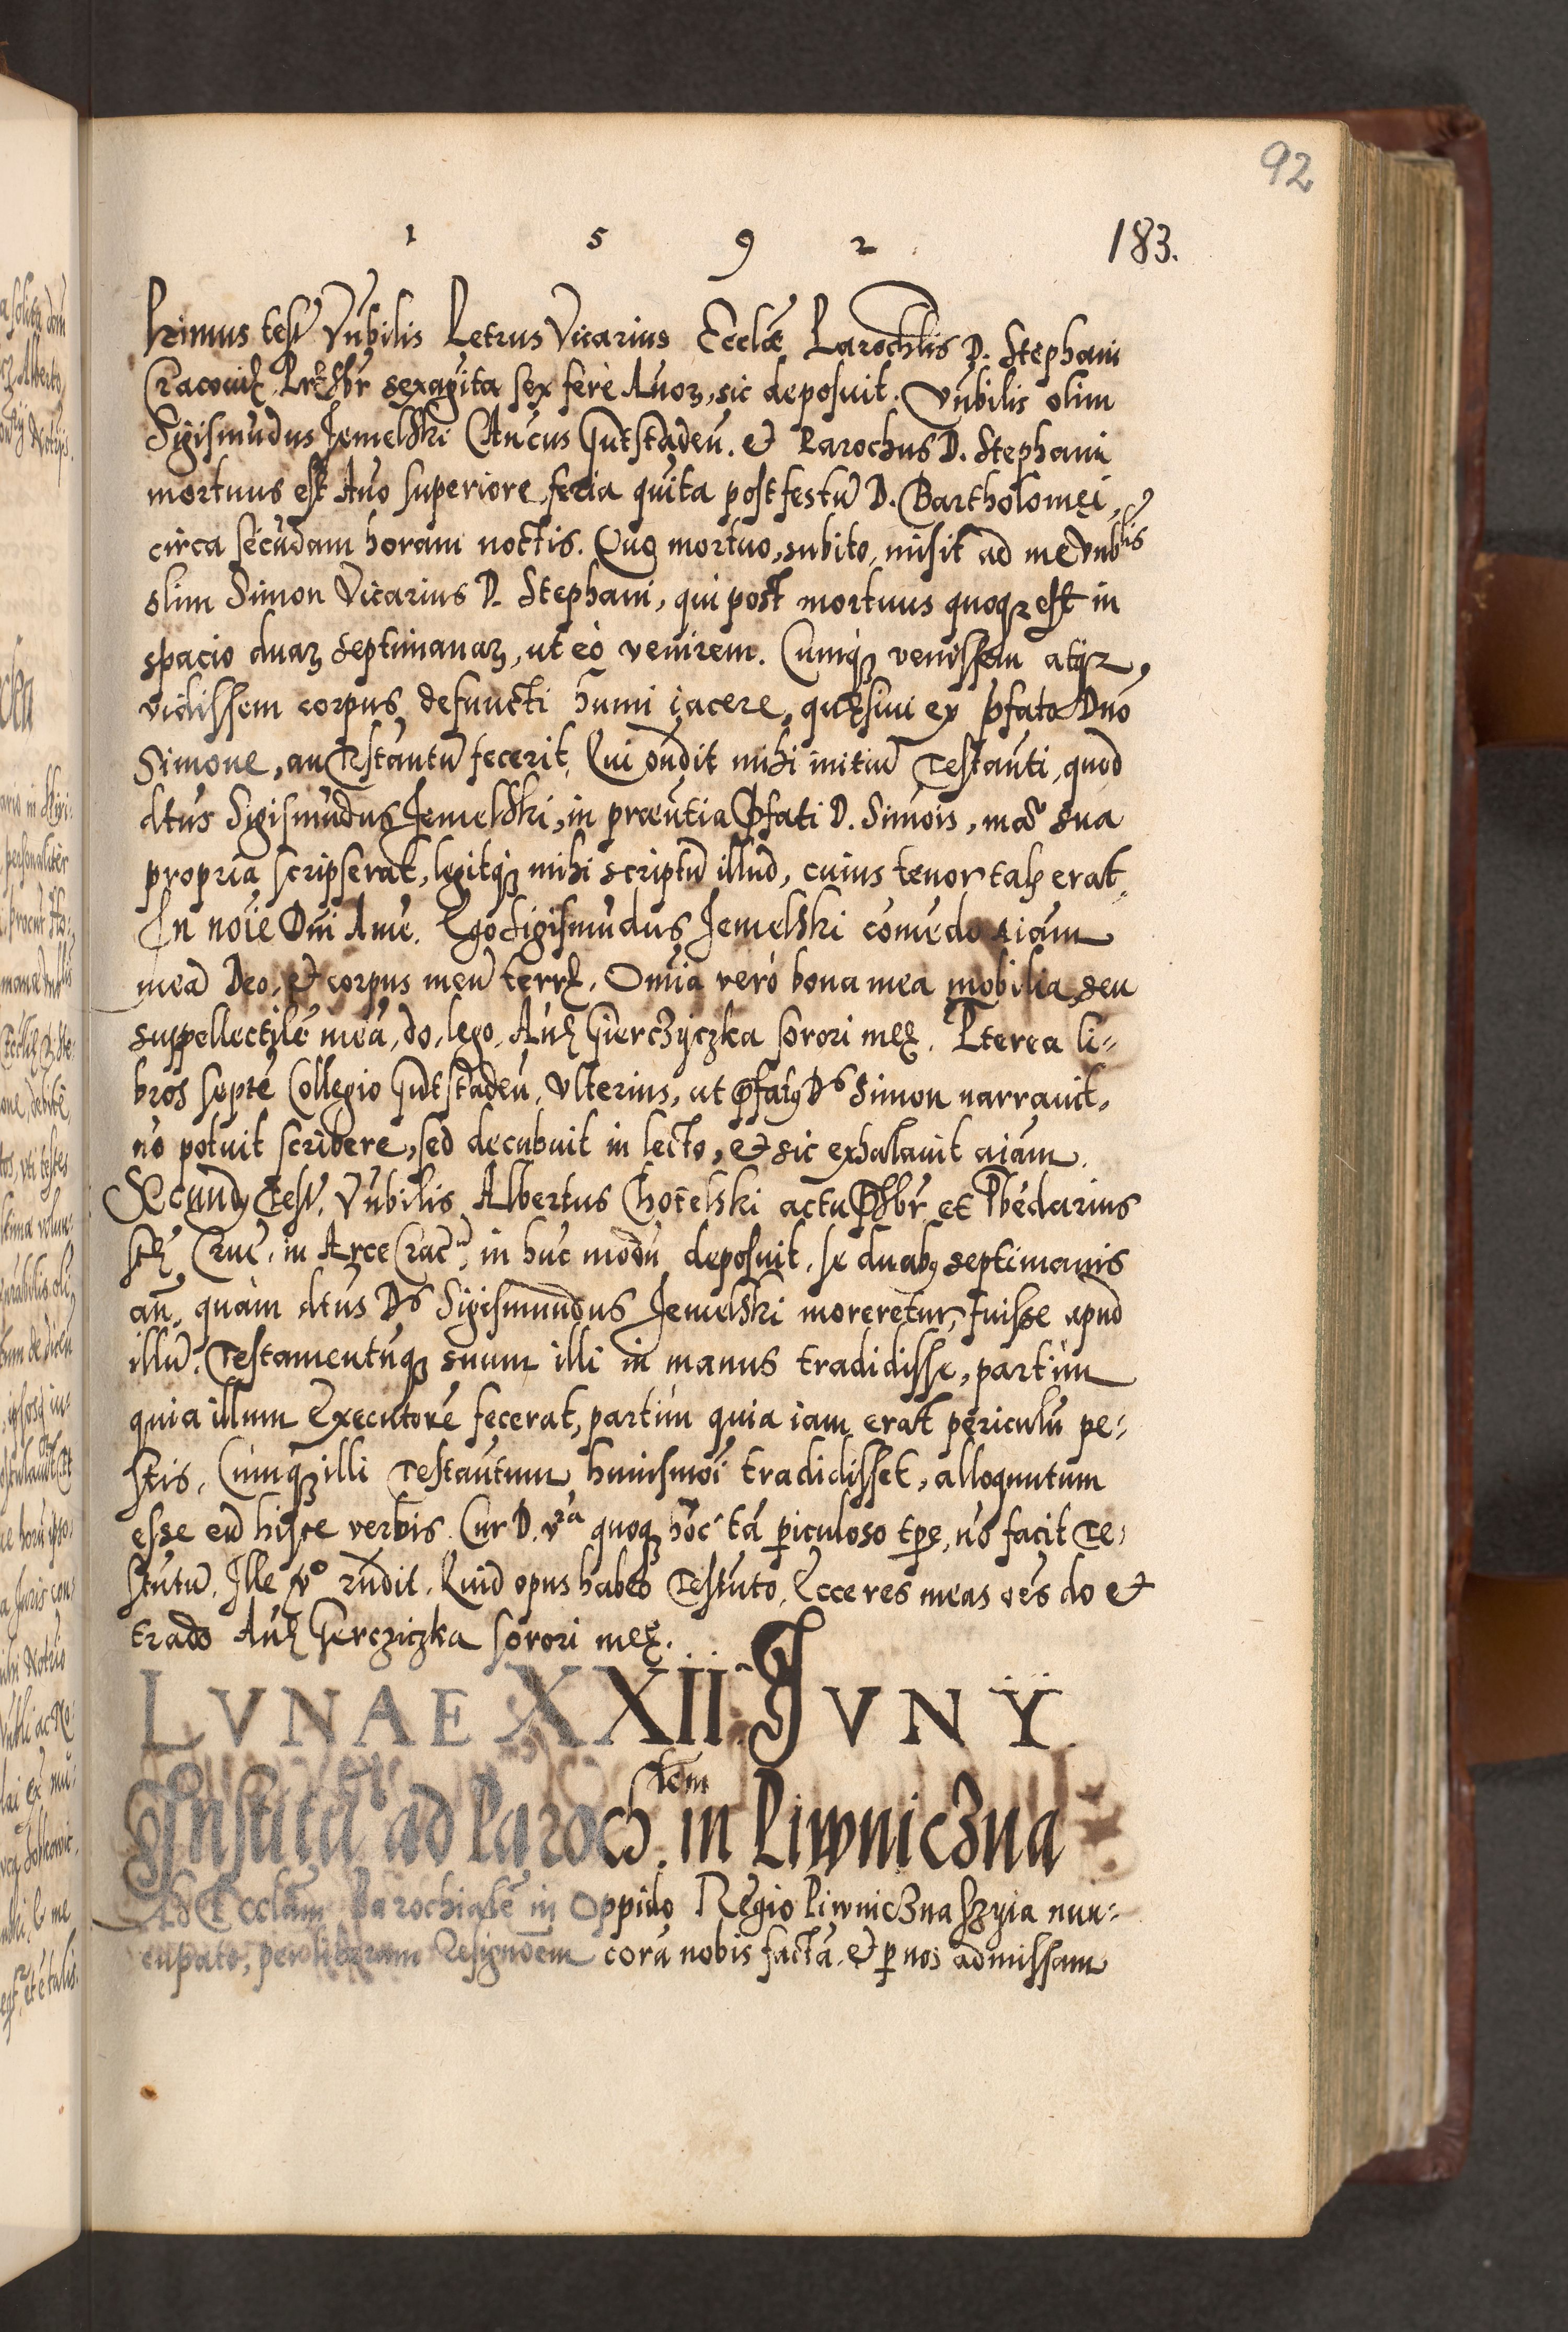 92
1 5 9 2 183.
Primus test. Vn̄bilis Petrus Vicarius Eccl̄æ Parochlis D. Stephani
Cracovię. Prēsbr̄ sexagīta sex ferè Anoȝ, sic deposuit. Vn̄bilis olim
Sigismūdus Jemelski Cān̄cus Gutstadeñ. et Parochus D. Stephani
mortuus est Ano superiore, feria quīta post festū D. Bartholomęi,
circa secūdam horam noctis. Quo mortuo, subito, misit ad me vnblis
olim Simon Vicarius D. Stephani, qui post mortuus quoqȝ est in
spacio duaȝ septimanaȝ, ut eò venirem. Cumqȝ venissem atqȝ
vidissem corpus defuncti humi iacere, quęsiui ex p̄fato Dno
Simone, an Testāntū fecerit, Qui ōndit mihi initiū Testān̄ti, quod
dtūs Sigismūdus Jemelski, in præntia p̄fati D. Simōis, mañ sua
propria scripserat, legitqȝ mihi scriptū illud, cuius tenor talis erat.
In noīe Dni Amē. Ego Sigismūdus Jemelski comēdo aiām
meā Deo, et corpus meū terrę. Omīa verò bona mea mobilia, seu
suppellectilē meā, do, lego, Anę Gierczyczka sorori meę. Pterea li-
bros septē Collegio Gutstadeñ. Vlterius, ut p̄fatꝰ Ds Simon narrauit,
nō potuit scribere, sed decubuit in lecto, et sic exhalauit aiām.
Secundꝰ Test. Vn̄bilis Albertus Chotelski actu Psbr̄ et Pbēdarius
stę Crucˢ. in Arce Crac̄. in hūc modū deposuit. Se duabꝰ septimanis
an̄, quàm dtūs Ds Sigismundus Jemelski moreretur, fuisse apud
illū. Testamentūqȝ suum illi in manus tradidisse, partim
quia illum Executorē fecerat, partim quia iam erat periculū pe-
stis. Cumqȝ illi Testān̄tum huiusmoī tradidisset, alloquutum
esse eū hisce verbis. Cur D. vra quoqȝ hōc tā piculoso tpe, nō facit Te-
stn̄tū. Ille v̊ rn̄dit. Quid opus habeo Testn̄to. Ecce res meas oēs do et
trado Anę Gercziczka sorori meę.
LVNAE XXII. JVNY
Institū ad Paroch.lem in Piwniczna
Ad Ecclām Parochialē in Oppido Regio Piwniczna szyia nun-
cupato, per liberam Resignōem corā nobis factā, et p nos admissam